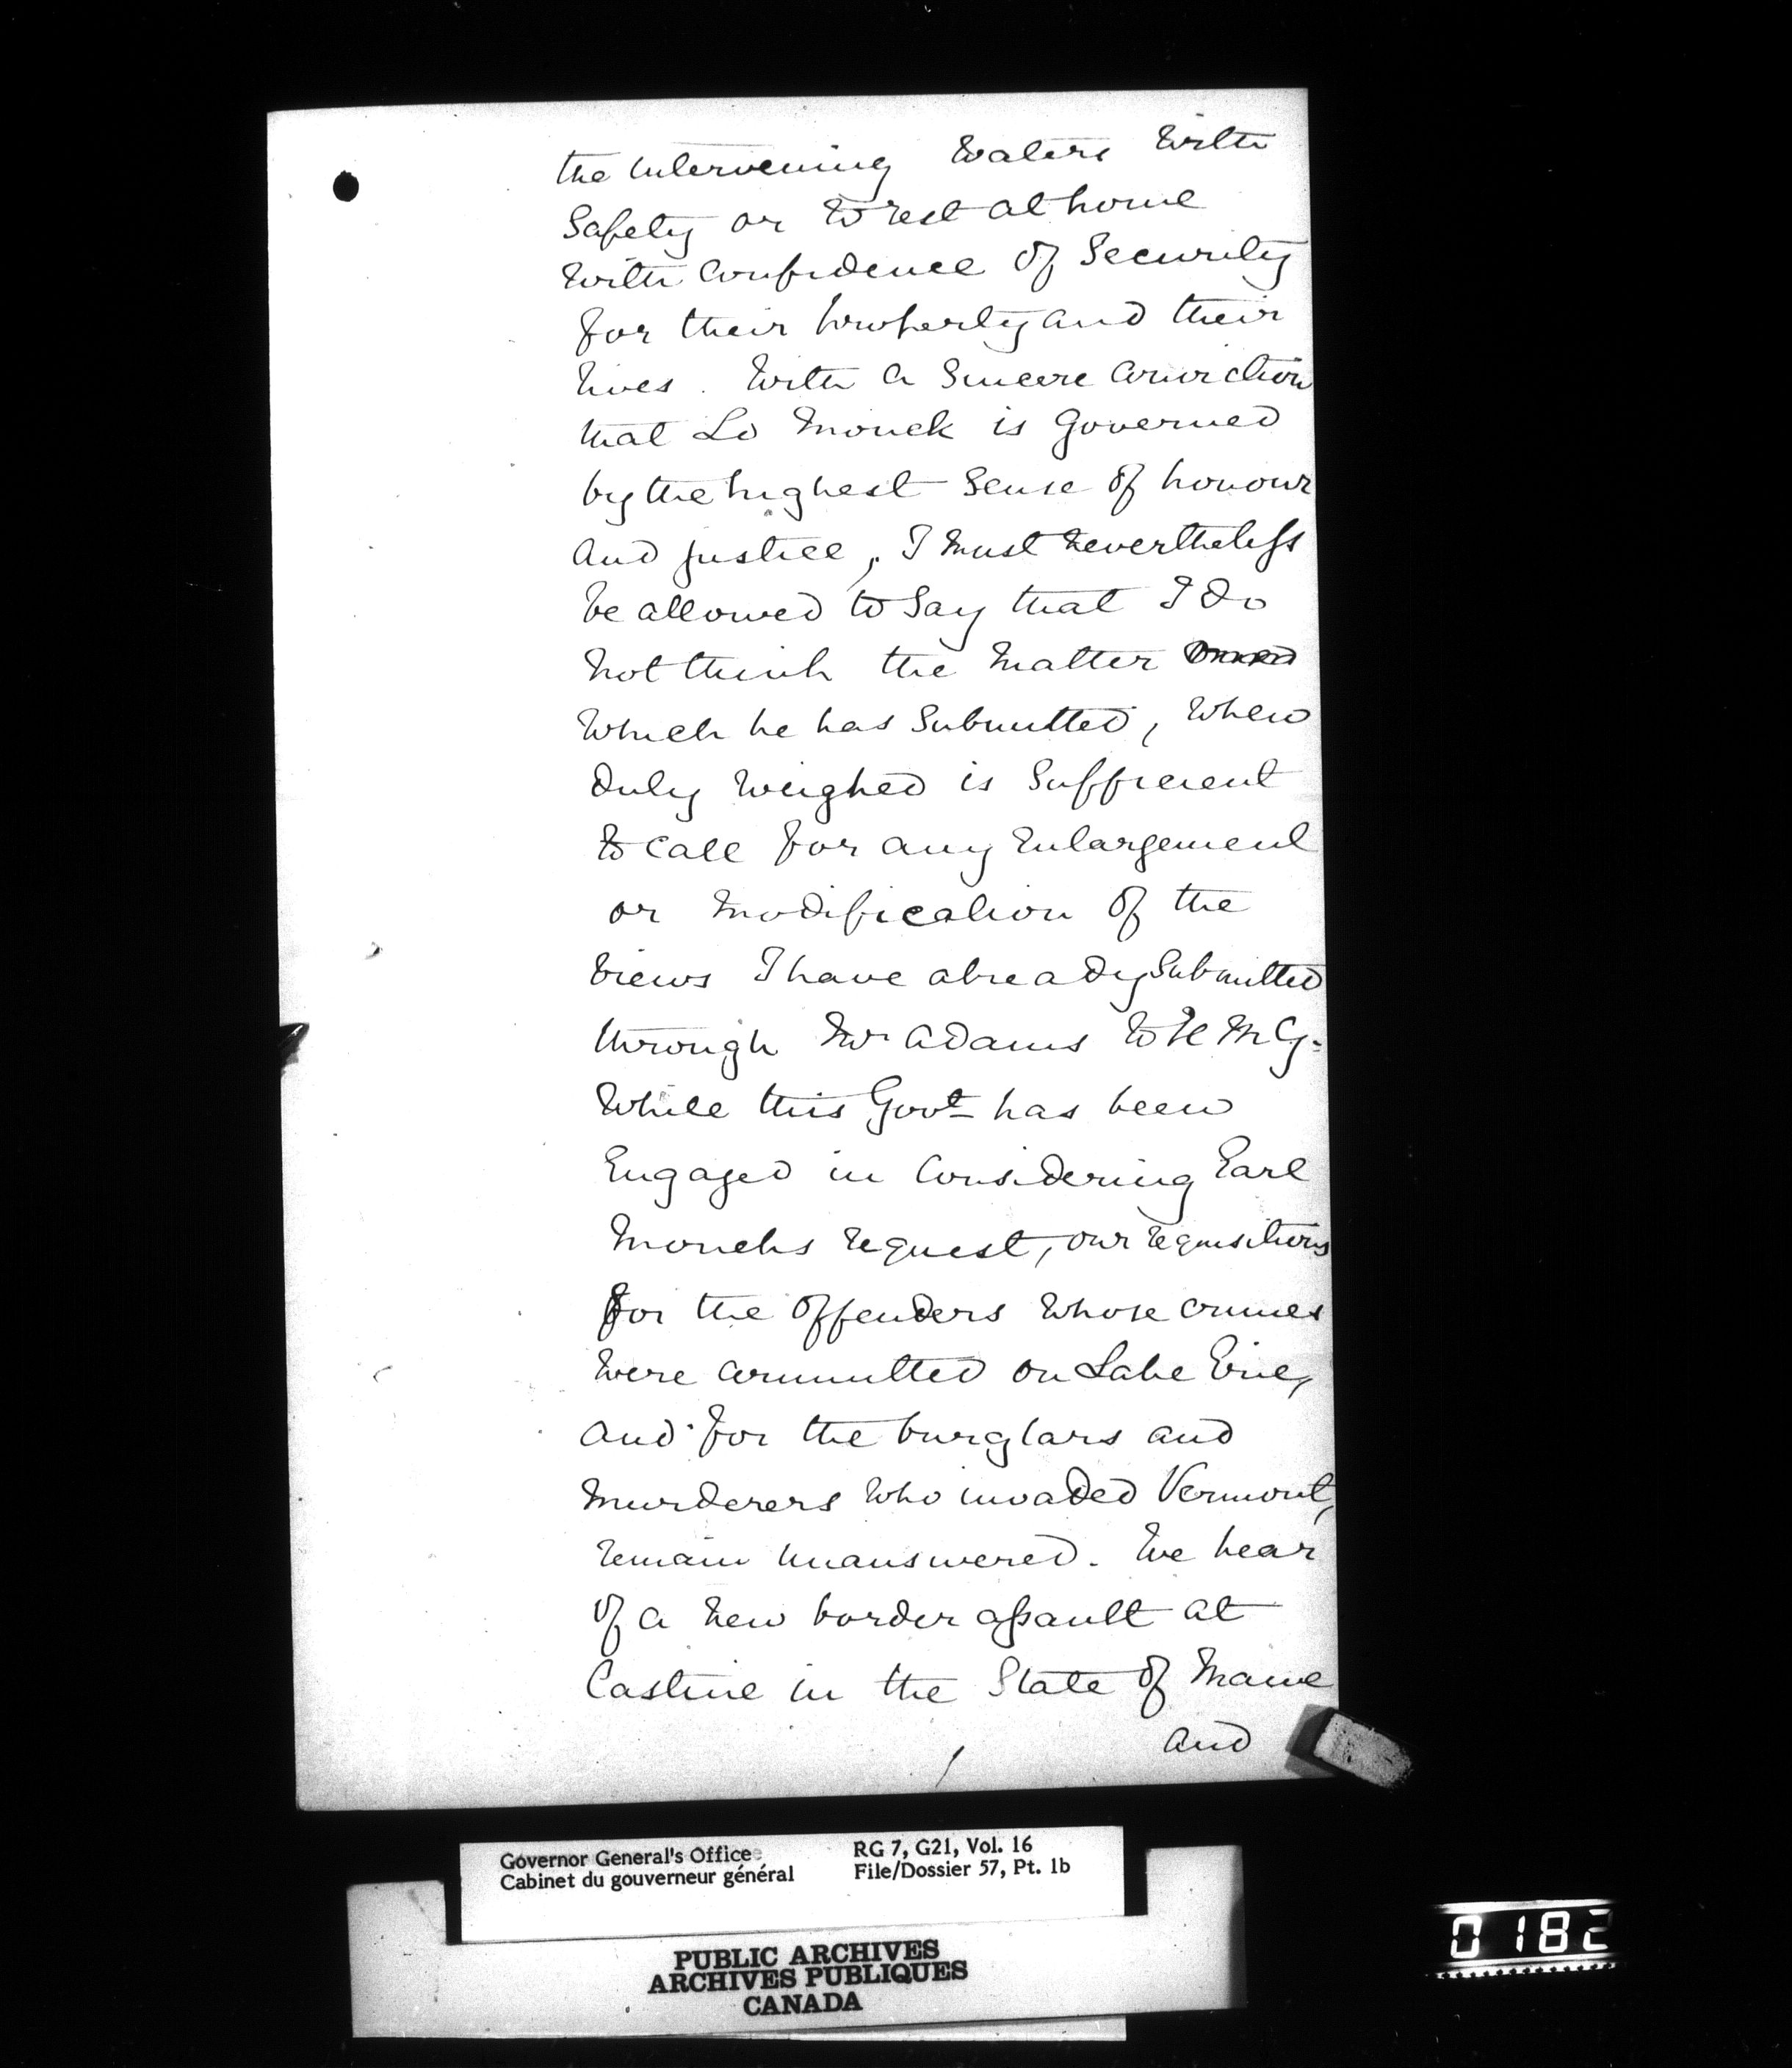 the intervening waters with
Safety or to rest at home
with confidence of Security
for their property and their
lives. With a Sincere conviction
that Ld Monck is Governed
by the highest Sense of honour
and justice, I must nevertheless
be allowed to Say that I do
not think the matter
which he has Submitted, when
duly weighed is Sufficient
to call for any enlargement
or modification of the
views I have already Submitted
through Mr Adams to H M G.
While this Govt has been
Engaged in Considering Earl
Moncks request, our requisitions
for the offenders whose crimes
were committed on Lake Erie,
and for the burglars and
murderers who invaded Vermont,
remain unanswered. We hear
of a new border assault at
Castine in the State of Maine
and
Governor General's Office
Cabinet du gouverneur général
RG 7, G21, Vol. 16
File/Dossier 57, Pt. 1b
PUBLIC ARCHIVES
ARCHIVES PUBLIQUES
CANADA
0182